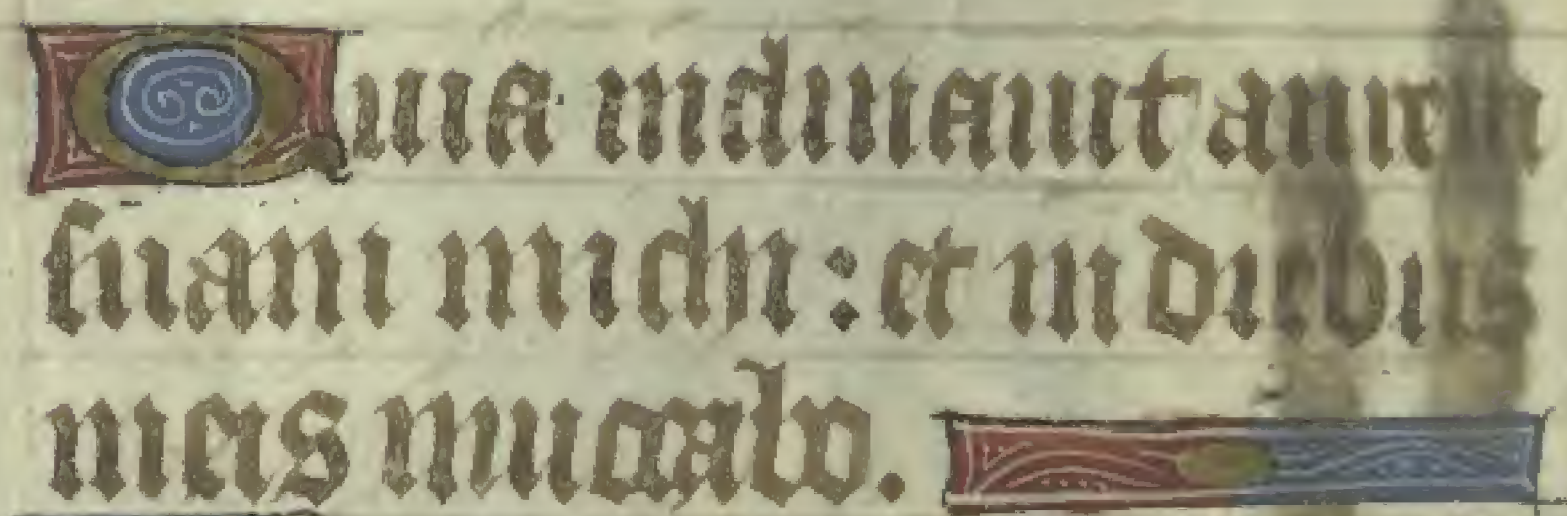 Quia inclinauit aurem
suam michi : et in diebus
meis inuocabo.